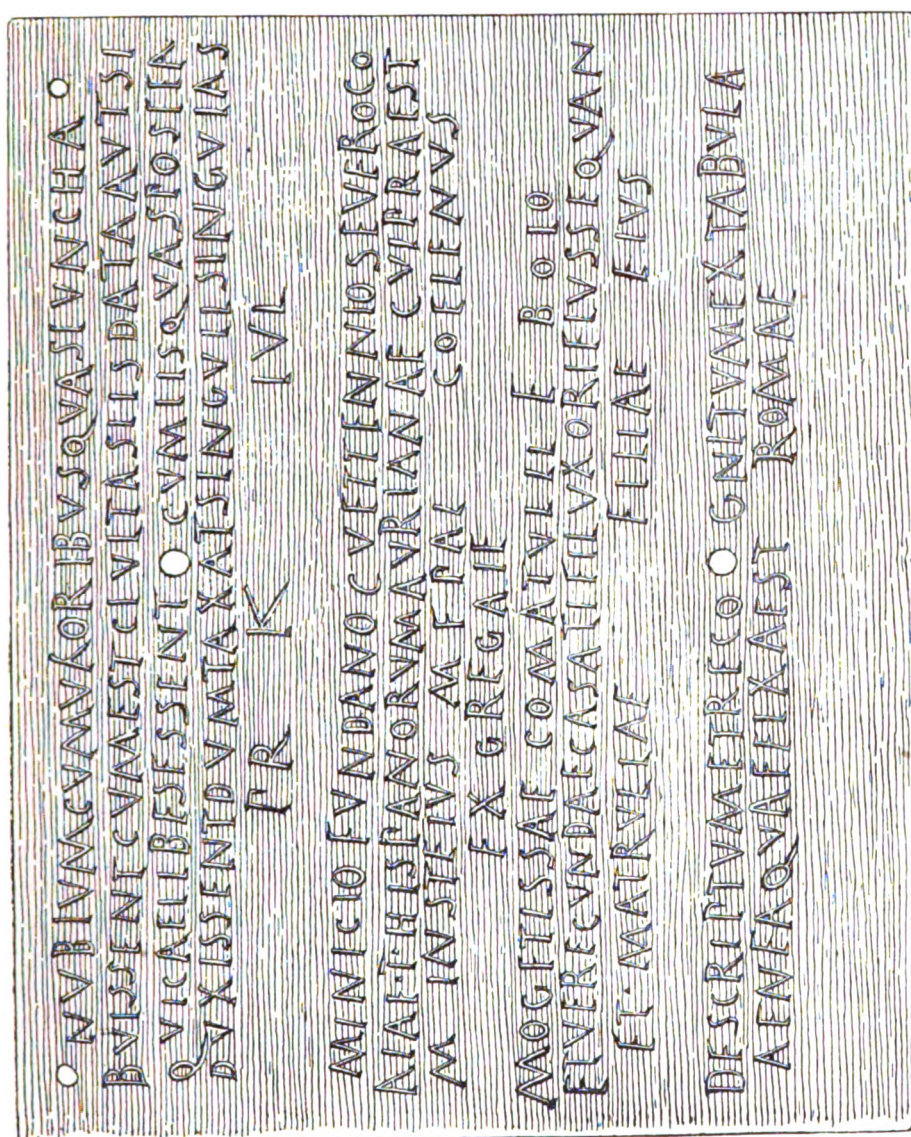 NVBIVM CVM VXORIBVS QVAS TVNC HA
BVISSENT CVM EST CIVITAS IIS DATA AVT SI
QVI CAELIBES ESSENT CVM IIS QVAS POSTEA
DVXISSENT DVMTAXAT SINGVLI SINGVLAS
PR K IVL
MINICIO FVNDANO C VETTENNIO SEVERO CO
ALAE I HISPANORVM AVRIANAE CVI PRAEST
M INSTEIVS M F PAL COELENVS
EX GREGALE
MOGETISSAE COMATVLLI F BOIO
ET VERECVNDAE CASATI FIL VXORI EIVS SEQVAN
ET MATRVLLAE FILIAE EIVS
DESCRIPTVM ET RECO GNITVM EX TABVLA
AENEA QVAE FIXA EST ROMAE